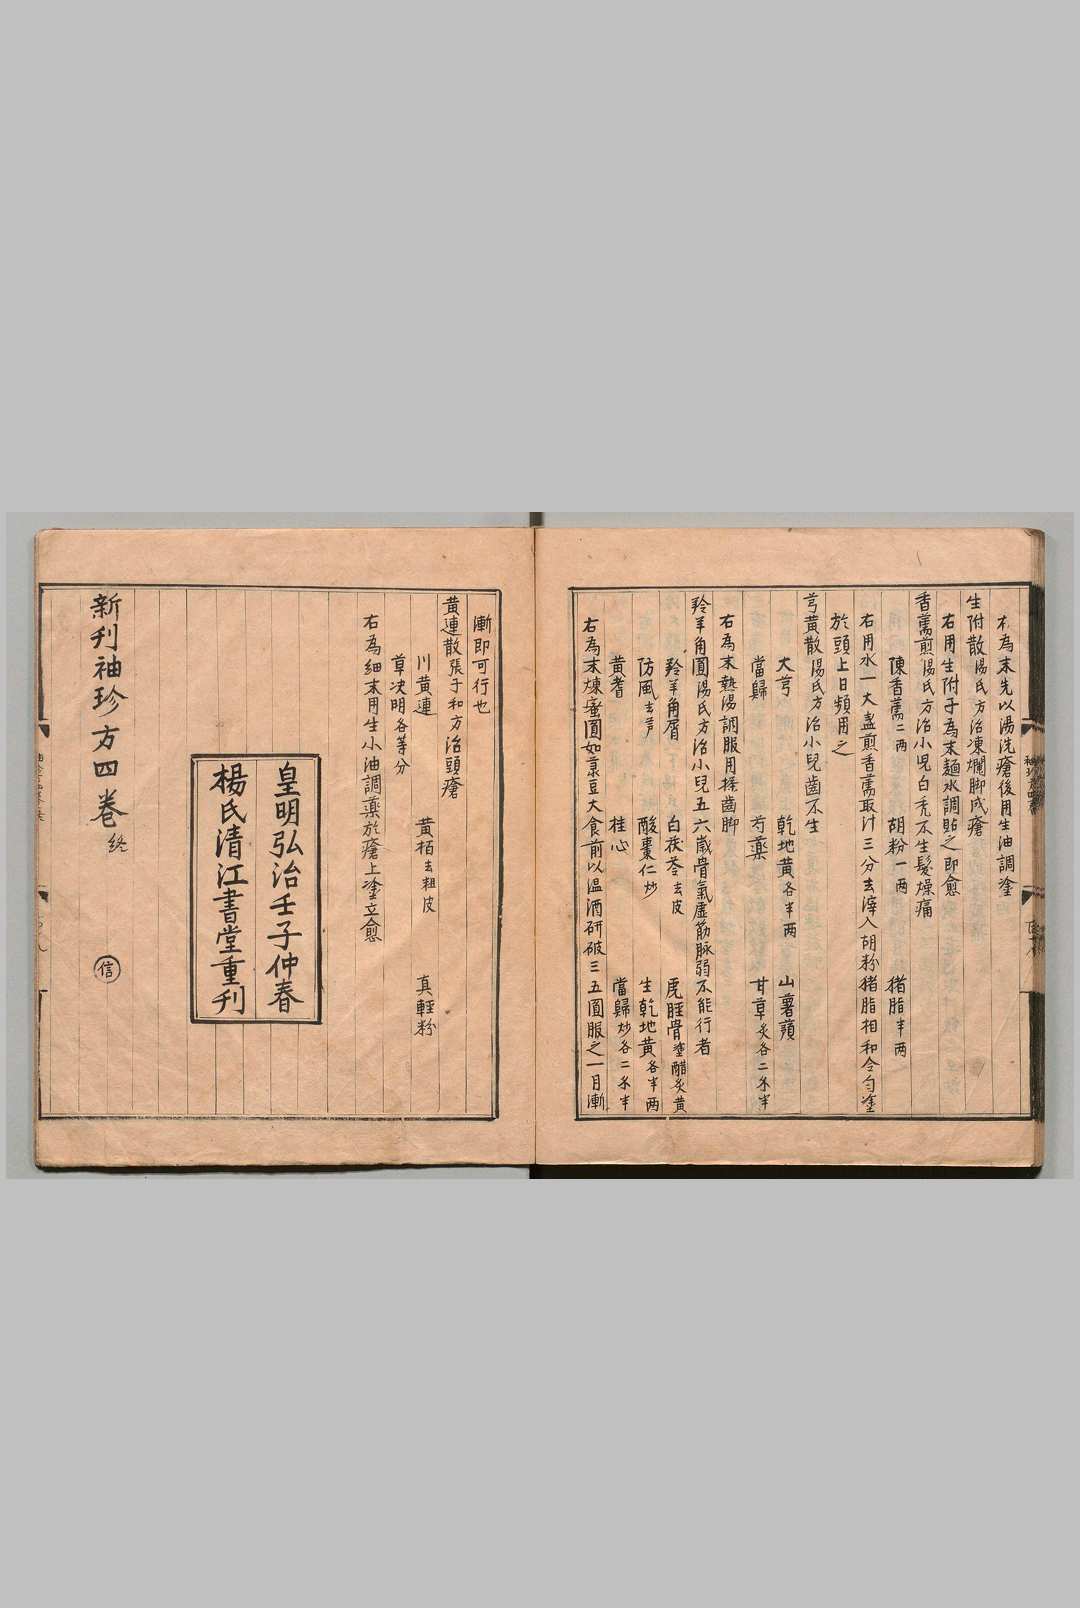 右為末先以湯洗瘡後用生油調塗
生附散湯氏方治凍爛脚成瘡
右用生附子為末麵水調貼之即愈
香薷煎湯氏方治小児白禿不生髮燥痛
陳香薷二两 胡粉一两 猪脂半两
右用水一大盏煎香薷取汁三分去滓入胡粉猪脂相和令匀塗
於頭上日頻用之
芎黄散湯氏方治小兒齒不生
大芎 乾地黄各半两 山薯蕷
當歸 芍藥 甘草炙各二分半
右為末熱湯調服用揉齒脚
羚羊角圓湯氏方治小兒五六歲骨氣虚筋脉弱不能行者
羚羊角屑 白茯苓去皮 虎脛骨塗醋炙黄
防風去芦 酸棗仁炒 生乾地黄各半两
黄耆 桂心 當歸炒各二分半
右為末煉蜜圓如菉豆大食前以温酒研破三五圓服之一月漸
漸即可行也
黄連散張子和方治頭瘡
川黄連 黄栢去粗皮 真輕粉
草决明各等分
右為細末用生小油調藥於瘡上塗立愈
皇明弘治壬子仲春
楊氏清江書堂重刋
新刋袖珍方四卷終 信